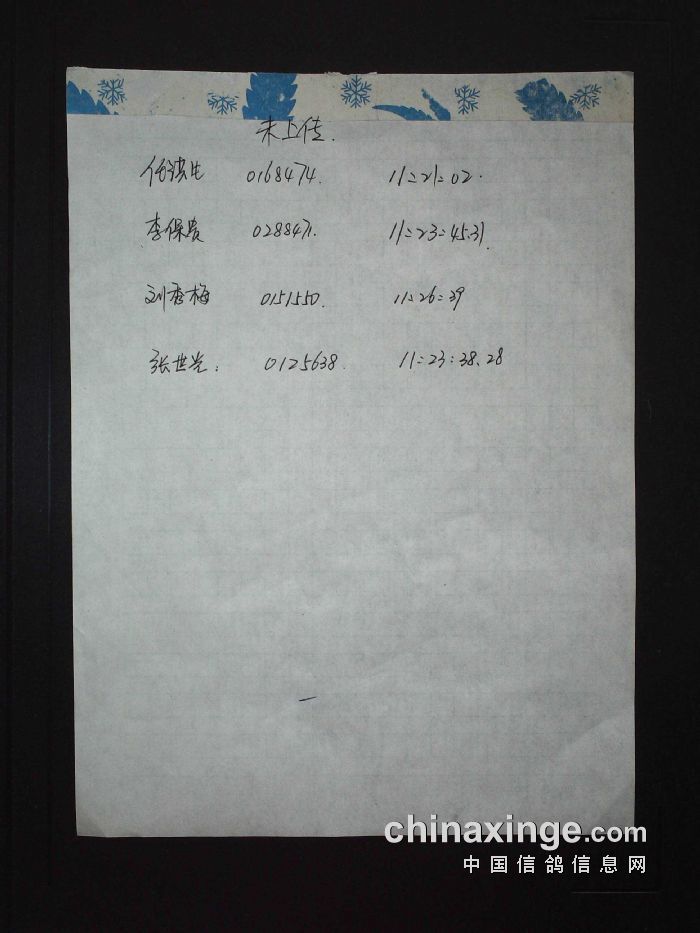 未上传.
任洪生 0168474. 11:21:02.
李保贵 028847. 11:23:45.31.
刘香梅 0151550. 11:26:39
张世光: 0125638. 11:23:38.28
chinaxinge.com
中国信鸽信息网